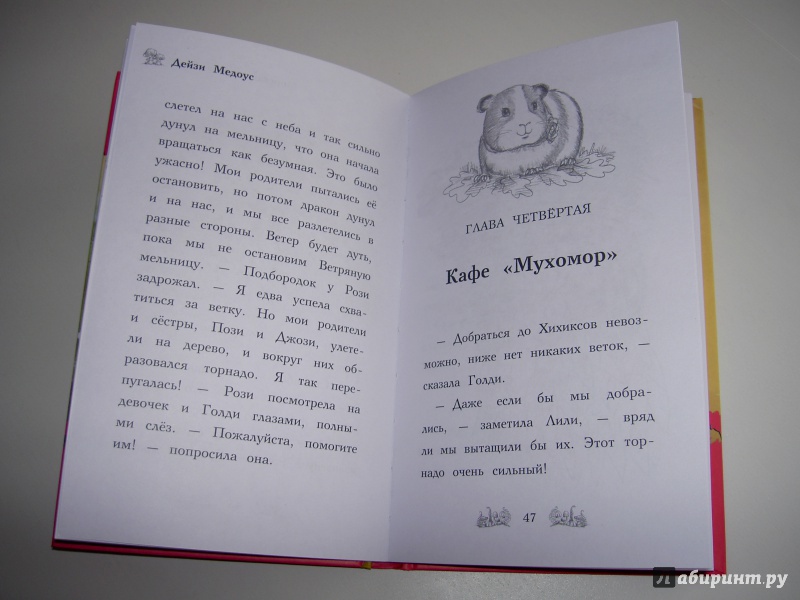 Дейзи Медоус
слетел на нас с неба и так сильно
дунул на мельницу, что она начала
вращаться как безумная. Это было
ужасно! Мои родители пытались её
остановить, но потом дракон дунул
и на нас, и мы все разлетелись в
разные стороны. Ветер будет дуть,
пока мы не остановим Ветряную
мельницу. — Подбородок у Рози
задрожал. — Я едва успела схва-
титься за ветку. Но мои родители
и сёстры, Пози и Джози, улете-
ли на дерево, и вокруг них об-
разовался торнадо. Я так пере-
пугалась! — Рози посмотрела на
девочек и Голди глазами, полны-
ми слёз. — Пожалуйста, помогите
им! — попросила она.
ГЛАВА ЧЕТВЁРТАЯ
Кафе «Мухомор»
— Добраться до Хихиксов невоз-
можно, ниже нет никаких веток, —
сказала Голди.
— Даже если бы мы добра-
лись, — заметила Лили, — вряд
ли мы вытащили бы их. Этот тор-
надо очень сильный!
47
Лабиринт.ру